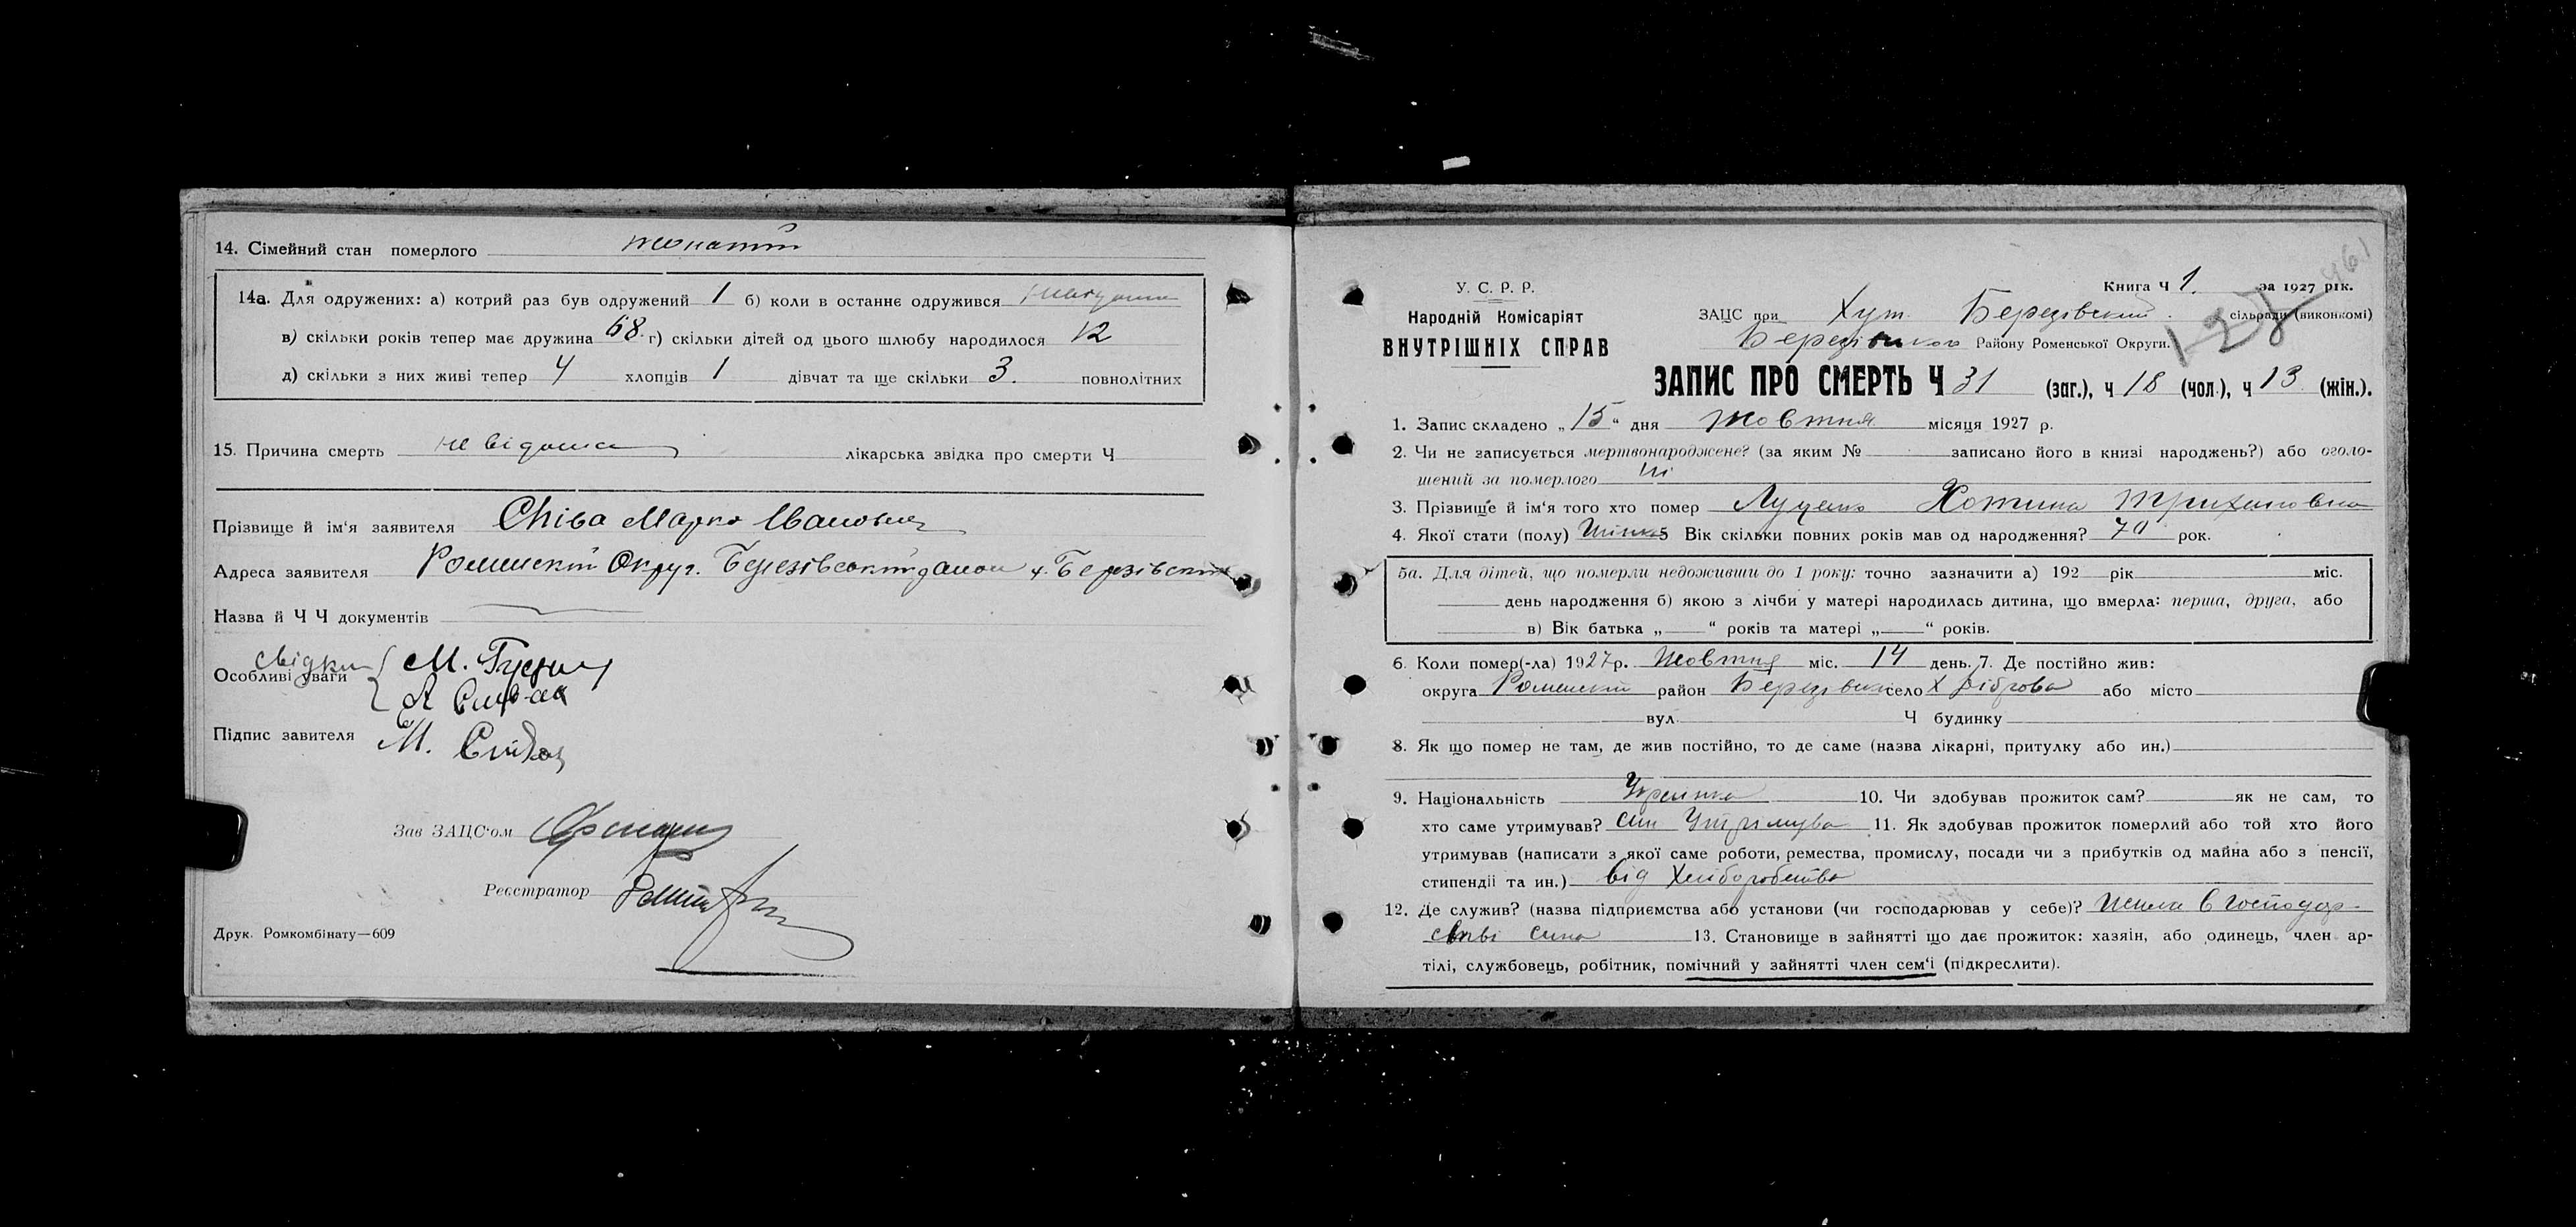 14. Сімейний стан померлого жонатий
14а. Для одружених: а) котрий раз був одружений 1 б) коли в останнє одружився
в) скільки років тепер має дружина 68 г) скільки дітей од цього шлюбу народилося 12
д) скільки з них живі тепер 4 хлопців 1 дівчат та ще скільки 3. повнолітних
15. Причина смерть не відома лікарська звідка про смерти Ч
Прізвище й ім'я заявителя Марко Іванович
Адреса заявителя Роменский Округ. Березівский х. Березівский
Назва й Ч Ч документів
свідки
Особливі уваги М.
А
Підпис завителя М.
Зав ЗАЦС'ом
Реєстратор
Друк. Ромкомбінату—609
461
У. С. Р. Р.
Народній Комісаріят
ВНУТРІШНІХ СПРАВ
Книга Ч 1. за 1927 рік.
ЗАЦС при Хут. Березівский. сільради (виконкомі)
Березівського Району Роменської Округи.
ЗАПИС ПРО СМЕРТЬ Ч 31 (заг.), ч 18 (чол.), ч 13 (жін.).
1. Запис складено „15" дня Жовтня місяця 1927 р.
2. Чи не записується мертвонароджене? (за яким № записано його в книзі народжень?) або оголо-
шений за померлого Ні
3. Прізвище й ім'я того хто помер Луценко Хотина Трихановна
4. Якої стати (полу) 5 Вік скільки повних років мав од народження? 70 рок.
5а. Для дітей, що померли недоживши до 1 року: точно зазначити а) 192 рік міс.
день народження б) якою з лічби у матері народилась дитина, що вмерла: перша, друга, або
в) Вік батька „ " років та матері „ " років.
6. Коли помер(-ла) 1927р. Жовтня міс. 14 день. 7. Де постійно жив:
округа Роменский район село х Діброва або місто
вул. Ч будинку
8. Як що помер не там, де жив постійно, то де саме (назва лікарні, притулку або ин.)
9. Національність 10. Чи здобував прожиток сам? як не сам, то
хто саме утримував? син Утримував 11. Як здобував прожиток померлий або той хто його
утримував (написати з якої саме роботи, ремества, промислу, посади чи з прибутків од майна або з пенсії,
стипендії та ин.) від Хліборобства
12. Де служив? (назва підприємства або установи (чи господарював у себе)? Жила в господар-
стві сина 13. Становище в зайнятті що дає прожиток: хазяін, або одинець, член ар-
тілі, службовець, робітник, помічний у зайнятті член сем'ї (підкреслити).